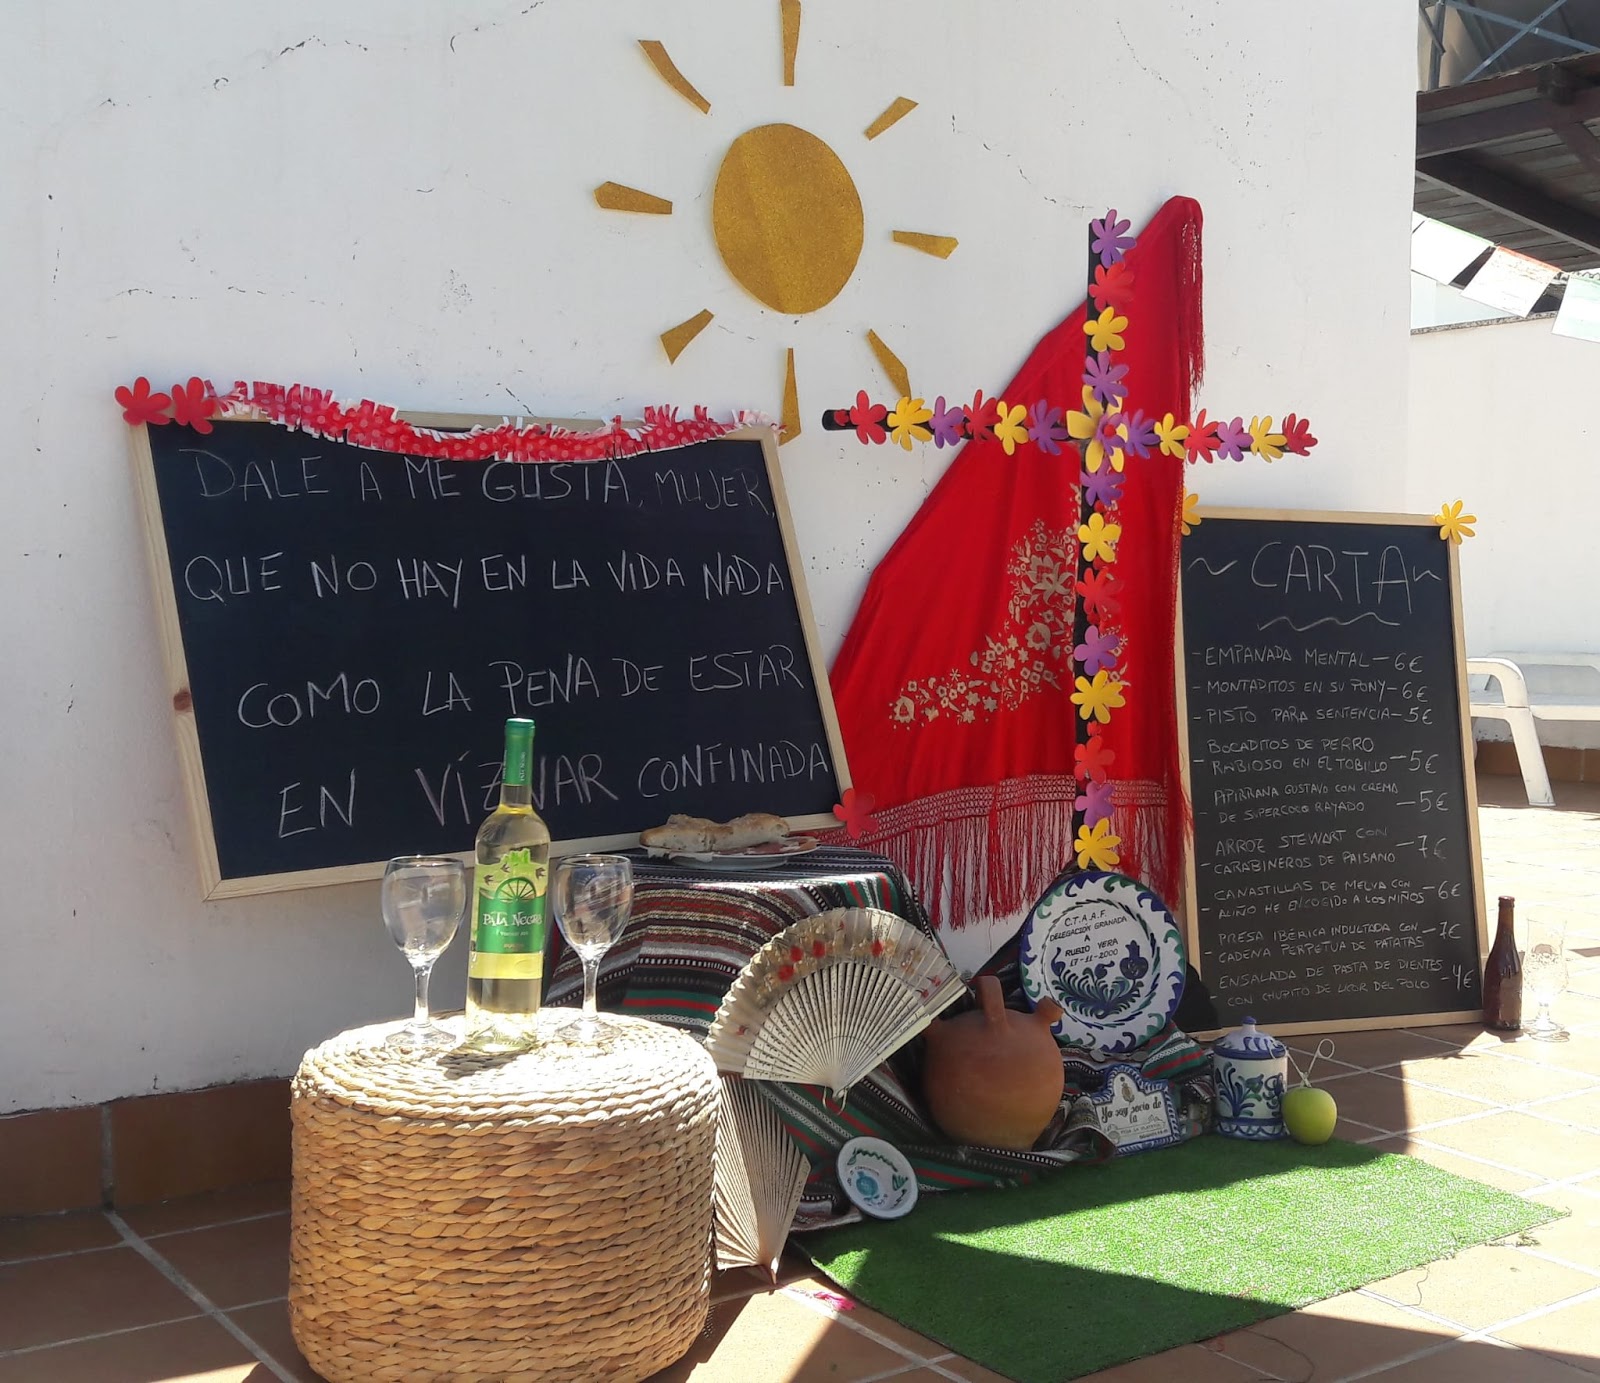 DALE A ME GUSTA, MUJER,
QUE NO HAY EN LA VIDA NADA
COMO LA PENA DE ESTAR
EN VÍZNAR CONFINADA
PATA NEGRA
~ CARTA ~
- EMPANADA MENTAL - 6€
- MONTADITOS EN SU PONY - 6€
- PISTO PARA SENTENCIA - 5€
BOCADITOS DE PERRO
- RABIOSO EN EL TOBILLO - 5€
APIRRANA GUSTAVO CON CREMA
- DE SUPERCOCO RAYADO - 5€
ARROZ STEWART CON
- CARABINEROS DE PAISANO - 7€
CANASTILLAS DE MELVA CON
- ALIÑO HE ENCOGIDO A LOS NIÑOS - 6€
PRESA IBÉRICA INDULTADA CON
- CADENA PERPETUA DE PATATAS - 7€
ENSALADA DE PASTA DE DIENTES
- CON CHUPITO DE LICOR DEL POLO - 4€
C.T.A.A.F.
DELEGACIÓN GRANADA
A
RUBIO VERA
17-11-2000
Yo soy socio de
la